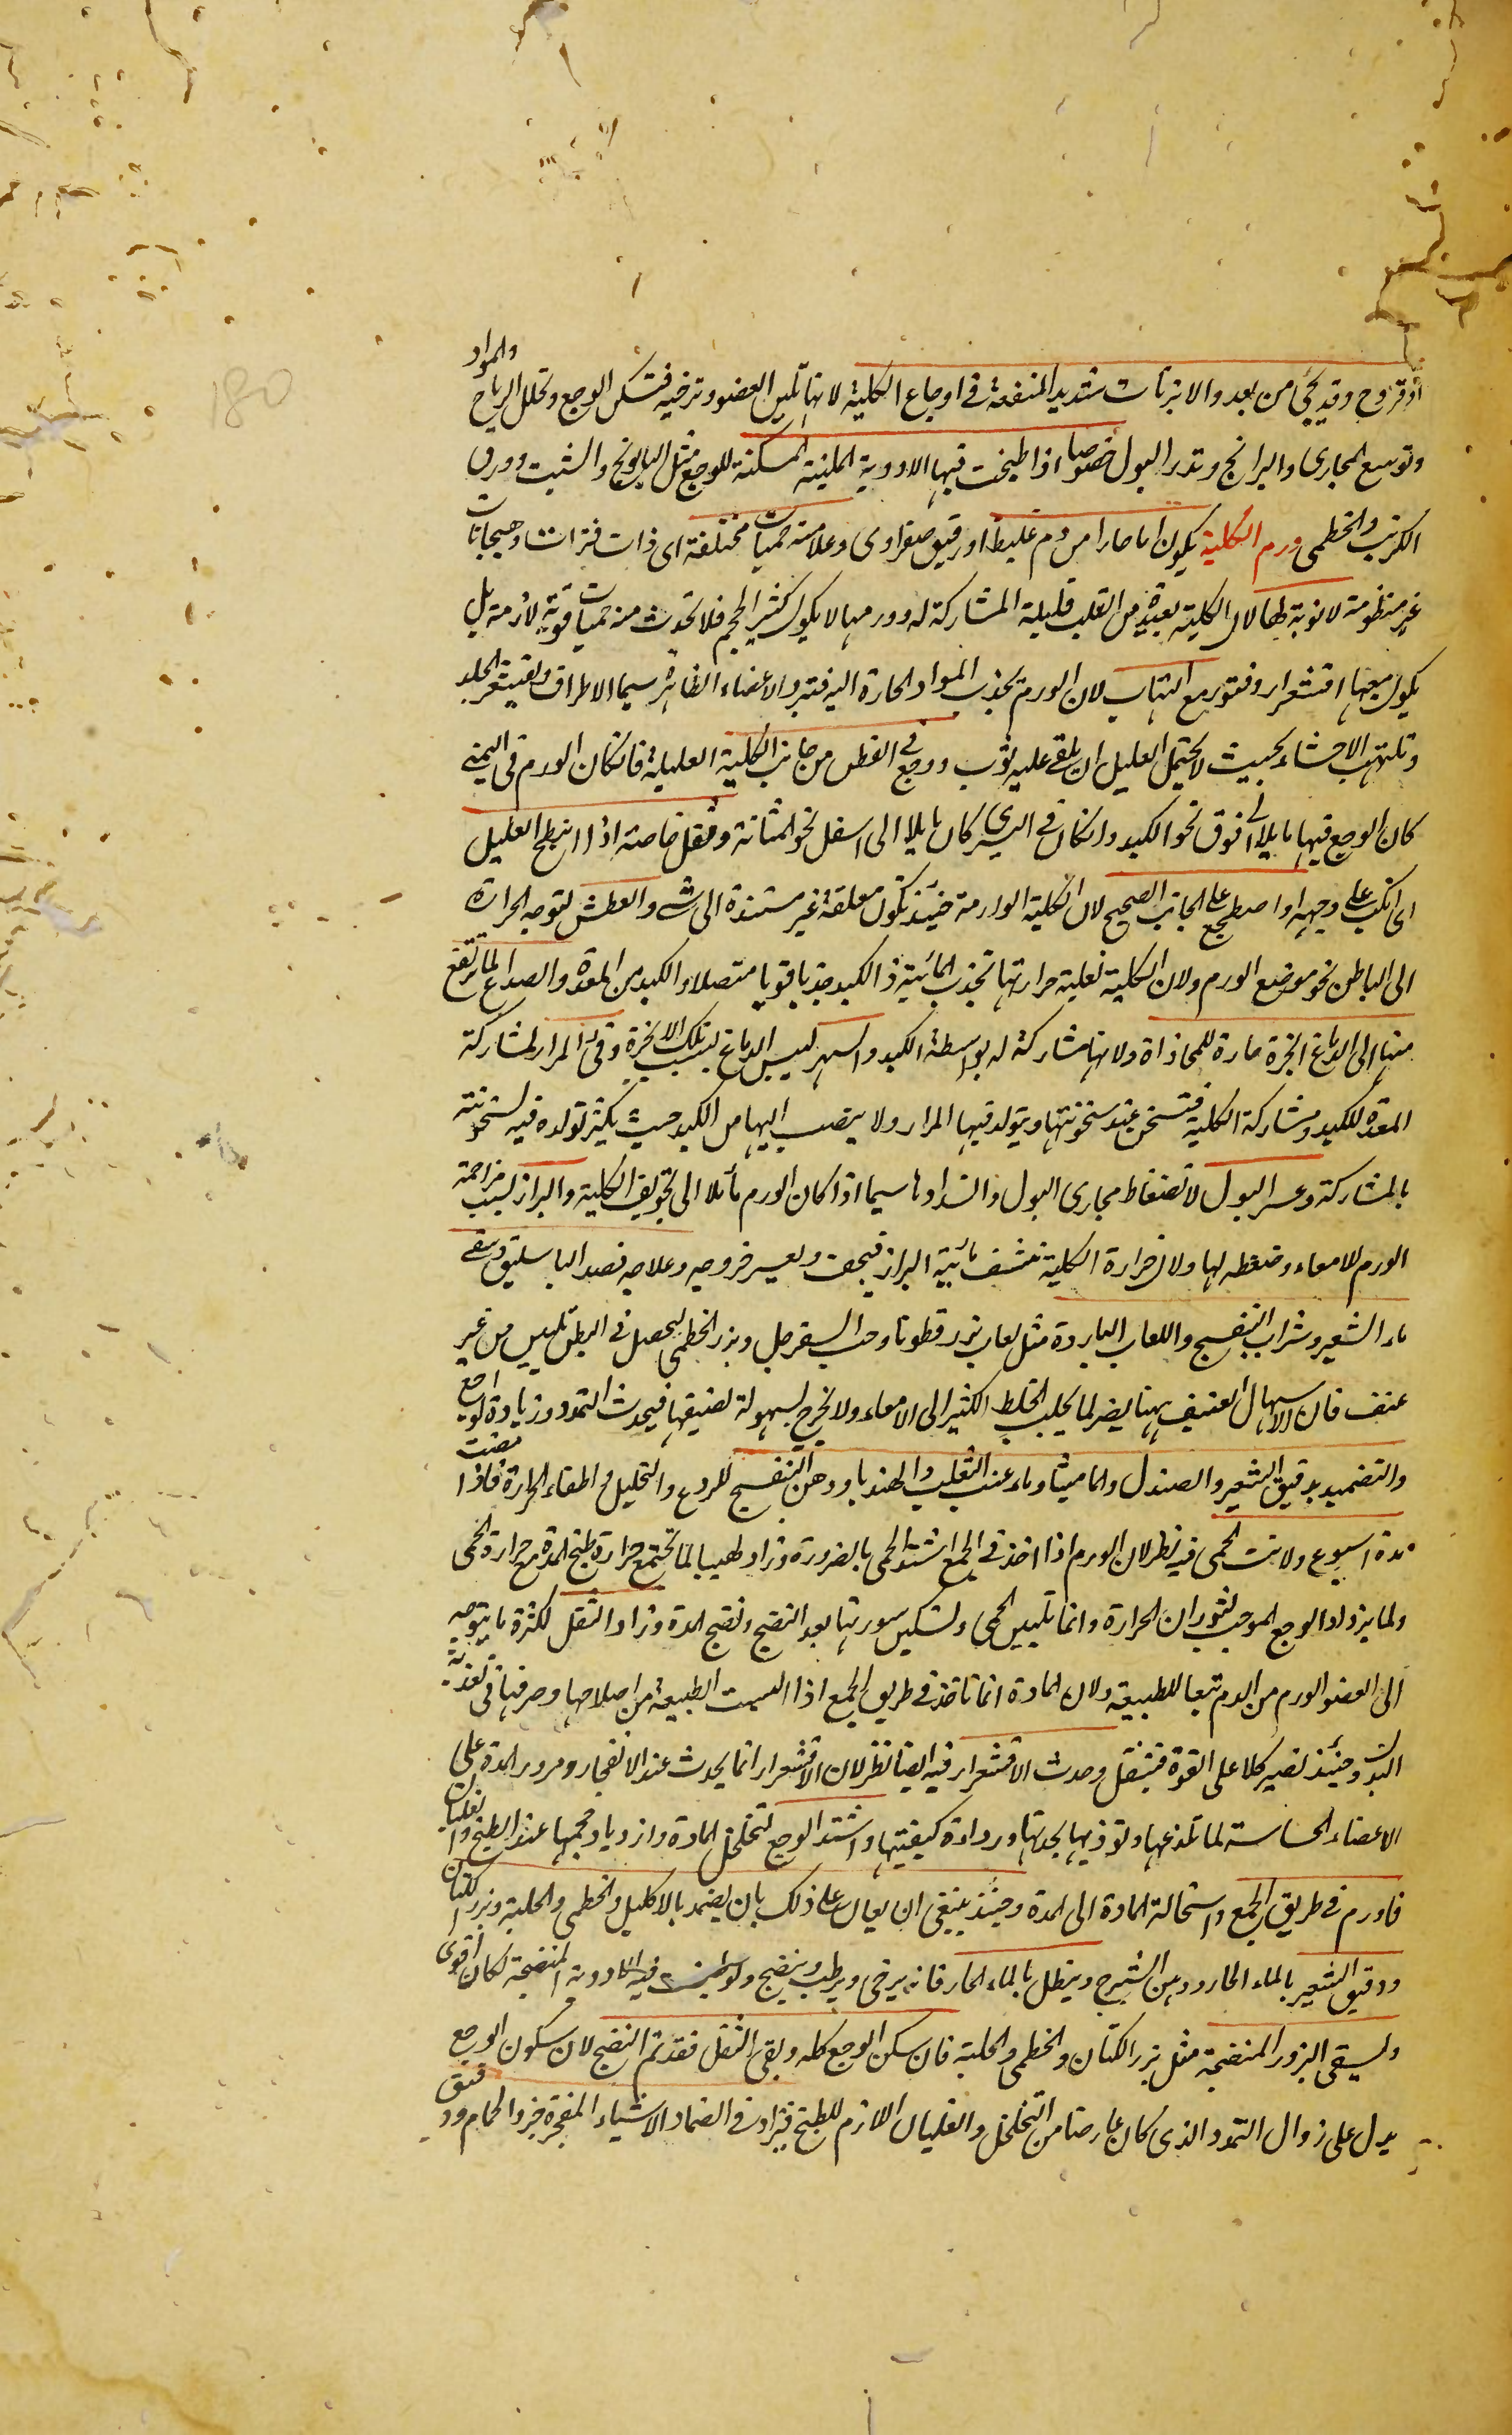 او قروح وقد يجئ من بعد والابزنات شديد المنفعة في اوجاع الكلية لانها تلين العضو وترخيه فتسكن الوجع وتحلل الرياح والمواد
وتوسع المجارى والبرانج وتدر البول خصوصا اذا طبخت فيها الادوية الملينة المسكنة للوجع مثل البابونج والشبت وورق
الكرنب والخطمى ورم الكلية يكون اما حارا من دم غليظ او رقيق صفراوى وعلامته حميات مختلفة اى ذات فترات وهيجانات
غير منظومة لا نوبة لها لان الكلية بعيدة من القلب قليلة المشاركة له وورمها لا يكون كثير الحجم فلا تحدث منه حميات قوية لازمة بل
يكون معها اقشعرار وفتور مع التهاب لان الورم يجذب المواد الحارة اليه فتبرد الاعضاء الظاهرة سيما الاطراف ويقشعر الجلد
وتلتهب الاحشاء بحيث لا يحتمل العليل ان يلقى عليه ثوب ووجع في القطن من جانب الكلية العليلة فان كان الورم في اليمنى
كان الوجع فيها مايلا الى فوق نحو الكبد وان كان في اليسرى كان مايلا الى اسفل نحو المثانة وثقل خاصة اذا انبطح العليل
اى انكب على وجهه او اضطجع على الجانب الصحيح لان الكلية الوارمة حينئذ تكون معلقة غير مستندة الى شئ والعطش لتوجه الحرارة
الى الباطن نحو موضع الورم ولان الكلية لغلبة حرارتها تجذب المائية من الكبد جذبا قويا متصلا والكبد من المعدة والصداع لما يرتفع
منها الى الدماغ ابخرة حارة للمحاذاة ولانها مشاركة له بواسطة الكبد والسهر ليبس الدماغ بسبب تلك الابخرة وقئ المرار لمشاركة
المعدة للكبد ومشاركة الكلية فتسخن عند سخونتها ويتولد فيها المرار ولا ينصب اليها من الكبد حيث يكثر تولده فيه لسخونته
بالمشاركة وعسر البول لانضغاط مجارى البول وانسدادها سيما اذا كان الورم مائلا الى تجويف الكلية والبراز لسبب مزاحمة
الورم للامعاء وضغطه لها ولان حرارة الكلية تنشف مائية البراز فيجف ويعسر خروجه وعلاجه فصد الباسليق وسقى
ماء الشعير وشراب البنفسج واللعاب الباردة مثل لعاب بزر قطونا وحب السفرجل وبزر الخطمى ليحصل في البطن تليين من غير
عنف فان الاسهال العنيف يهنا يضر لما يجلب الخلط الكثير الى الامعاء ولا يخرج بسهولة لضيقها فيحدث التمدد وزيادة الوجع
والتضميد بدقيق الشعير والصندل والماميثا وماء عنب الثعلب والهندبا ودهن البنفسج للردع والتحليل واطفاء الحرارة فاذا مضت
مدة اسبوع ولانت الحمى فيه نظر لان الورم اذا اخذ في الجمع اشتد الحمى بالضرورة وزاد لهيبا لما تجتمع حرارة طبخ المدة مع حرارة الحمى
ولما يزداد الوجع الموجب لثوران الحرارة وانما تليين الحمى وتسكين سورتها بعد النضج ونضج المدة وزاد الثقل لكثرة ما يتوجه
الى العضو الورم من الدم تبعا للطبيعة ولان المادة انما تاخذ في طريق الجمع اذا ايست الطبيعة من اصلاحها وصرفها في تغذية
البدن وحينئذ تصير كلا على القوة فتثقل وحدث الاقشعرار فيه ايضا نظر لان الاقشعرار انما يحدث عند الانفجار ومرور المدة على
الاعضاء الحساسة لما تلذعها وتوذيها بحدتها ورداءة كيفيتها واشتد الوجع لتخلخل المادة وازدياد حجمها عند الطبخ والغليان
فاورم في طريق الجمع واستحالة المادة الى المدة وحينئذ ينبغى ان يعان على ذلك بان يضمد بالاكليل والخطمى والحلبة وبزر الكتان
ودقيق الشعير بالماء الحار ودهن الشيرج وينطل بالماء الحار فانه يرخى ويرطب وينضج ولو طبخت فيه الادوية المنضجة لكان اقوى
ويسقى البزور المنضجة مثل بزر الكتان والخطمى والحلبة فان سكن الوجع كله وبقى الثقل فقد تم النضج لان سكون الوجع
يدل على زوال التمدد الذى كان عارضا من التخلخل والغليان اللازم للطبخ فيزاد في الضماد الاشياء المفجرة كخرء الحمام ودقيق